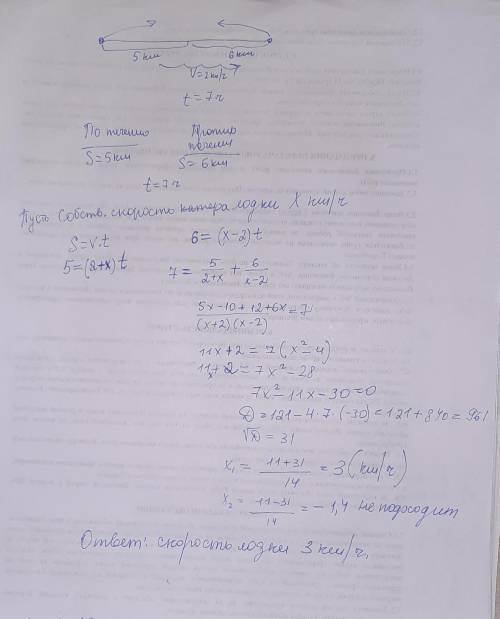 5 км 6 км
V=2 км/ч
t=7 ч
По течению Против течения
S=5км S=6км
t=7 ч
Пусть Собств. скорость катера лодки X км/ч
S=V·t 6=(x-2)t
5=(2+x)t 7= 5/(2+x) + 6/(x-2)
(5x-10+12+6x)/((x+2)(x-2)) =7
11x+2=7(x²-4)
11x+2=7x²-28
7x²-11x-30=0
D=121-4·7·(-30)=121+840=961
√D=31
x₁= (11+31)/14 =3(км/ч)
x₂= (11-31)/14 =-1,4 не подходит
Ответ: скорость лодки 3 км/ч.